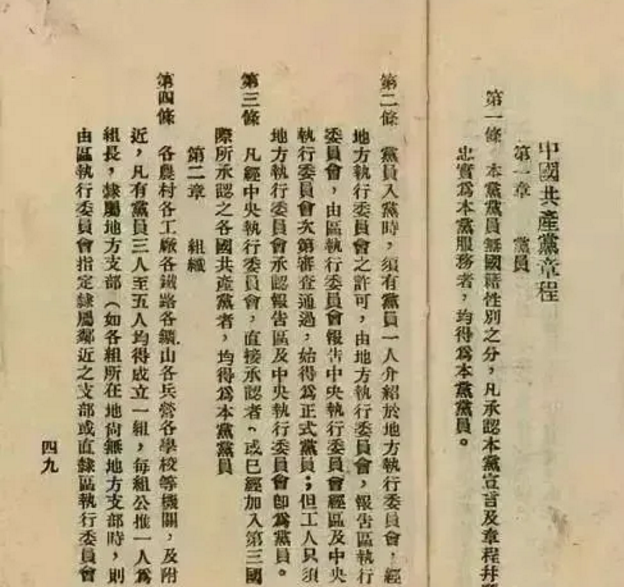 中國共產黨章程
第一章　黨員
第一條　本黨黨員無國籍性別之分，凡承認本黨宣言及章程幷
忠實爲本黨服務者，均得爲本黨黨員。
第二條　黨員入黨時，須有黨員一人介紹於地方執行委員會，經
地方執行委員會之許可，由地方執行委員會，報告區執行
委員會，由區執行委員會報告中央執行委員會經區及中央
執行委員會次第審查通過，始得爲正式黨員；但工人只須
地方執行委員會承認報告區及中央執行委員會卽爲黨員。
第三條　凡經中央執行委員會，直接承認者，或已經加入第三國
際所承認之各國共產黨者，均得爲本黨黨員
第二章　組織
第四條　各農村各工廠各鐵路各鑛山各兵營各學校等機關，及附
近，凡有黨員三人至五人均得成立一組，每組公推一人爲
組長，隸屬地方支部（如各組所在地尙無地方支部時，則
由區執行委員會指定隸屬鄰近之支部或直隸區執行委員會
四九